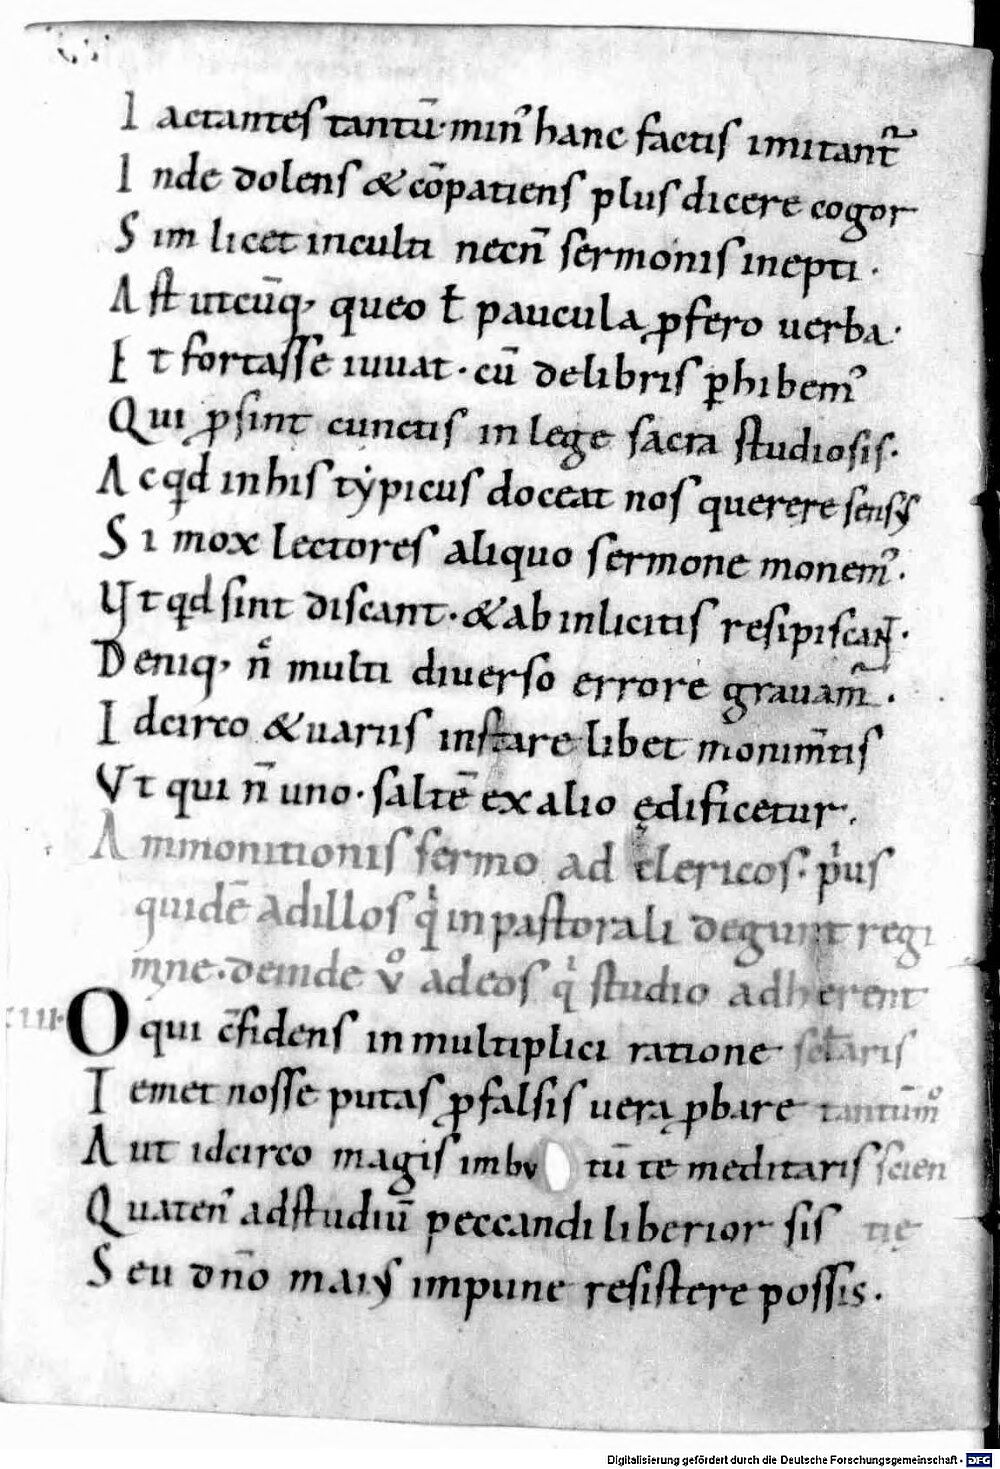 I actantes tantū· min᾽ hanc factis imitant᷑
I nde dolens & cōpatiens plus dicere cogor
S im licet inculti necn̄ sermonis inepti·
A st utcūq; queo ł paucula ꝓfero uerba·
E t fortasse iuuat· cū de libris ꝑhibem᾽
Qui ꝓsint cunctis in lege sacra studiosis·
A c qđ in his tẏpicus doceat nos querere sensus
S i mox lectores aliquo sermone monem᾽·
Ut qđ sint discant· & ab inlicitis resipiscant·
D eniq; n̄ multi diuerso errore grauam᷑·
I dcirco & uariis instare libet monim̄tis
Ut qui n̄ uno· saltē ex alio ędificetur.
A mmonitionis sermo ad clericos· pͥus
quidē ad illos qͥ in pastorali degunt regi
mine· deinde v° ad eos qͥ studio adherent
XIII· O qui c̄fidens in multiplici ratione sc̄laris
T emet nosse putas ꝓ falsis uera ꝓbare tantūm°
A ut idcirco magis imbu tū te meditaris scien
Q uaten᾽ ad studiū peccandi liberior sis tię
S eu dn̄o maius impune resistere possis·
Digitalisierung gefördert durch die Deutsche Forschungsgemeinschaft - DFG